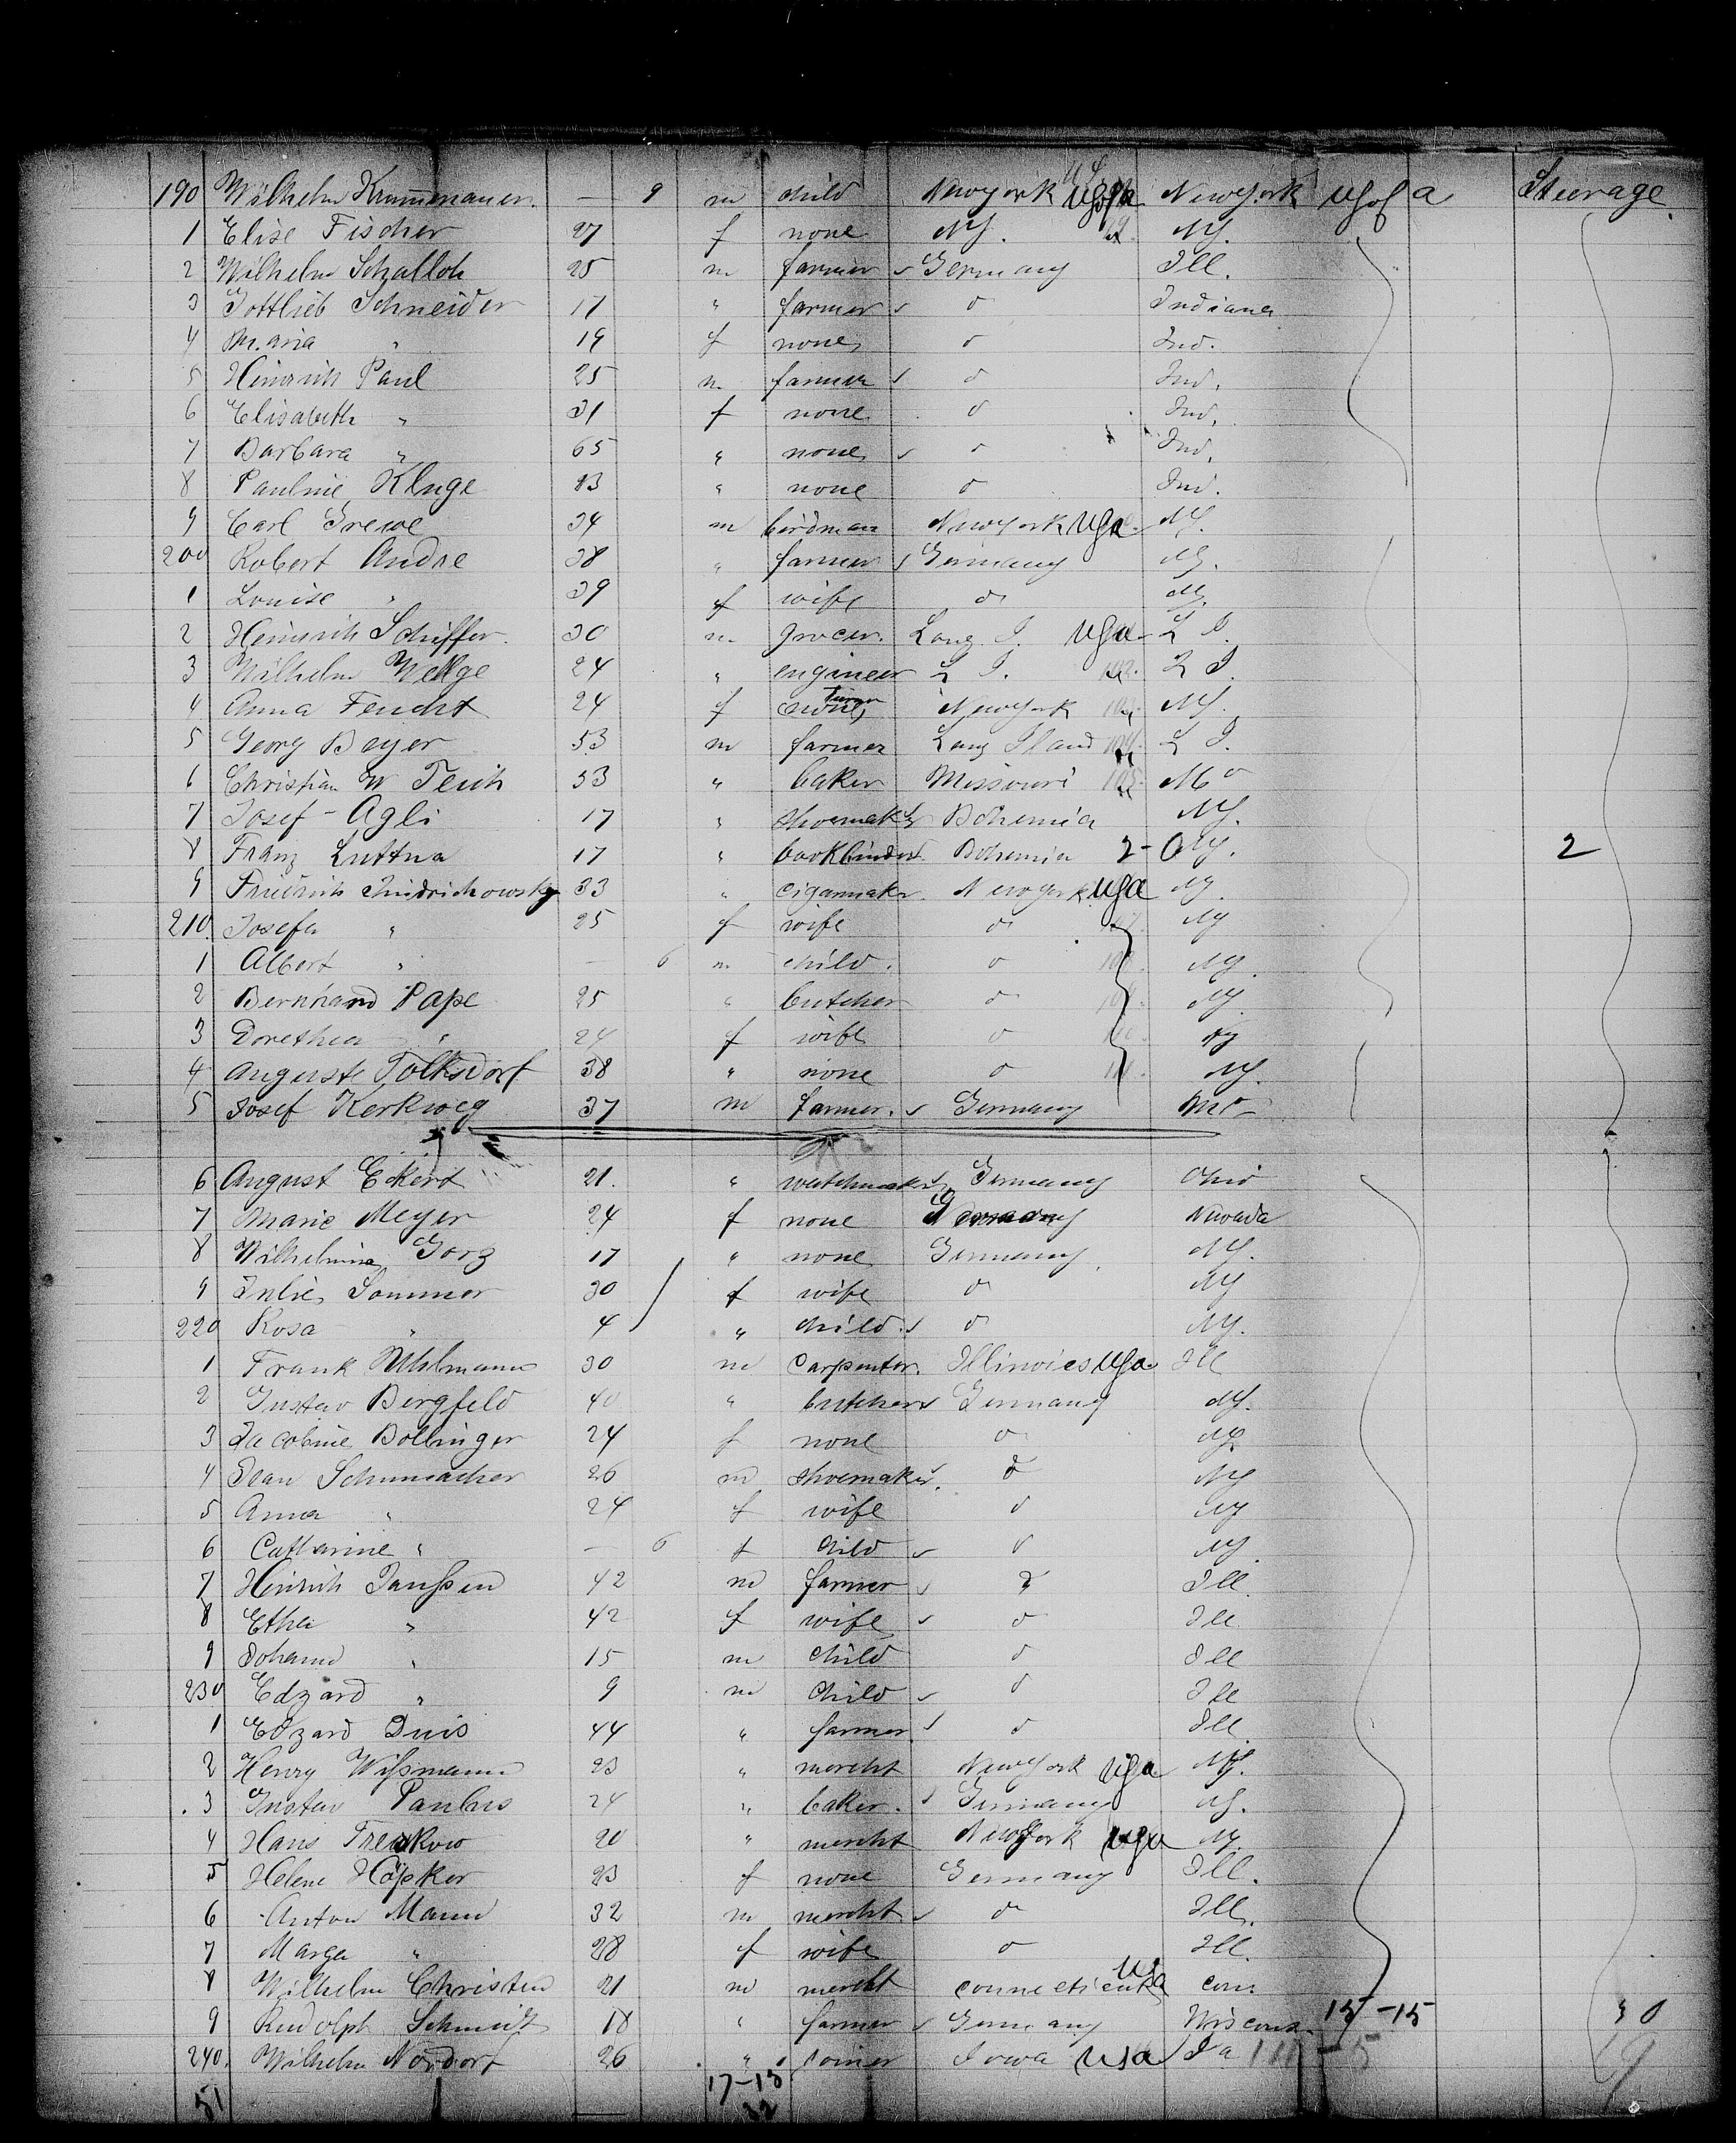 190 Wilhelm Krummenauer. — 9 m child Newyork USofa NewYork USofa Steerage
1 Elise Fischer 27 f none NY. NY.
2 Wilhelm Schalloh 25 m farmer Germany Ill.
3 Gottlieb Schneider 17 " farmer o Indiana
4 Maria " 19 f none o Ind.
5 Heinrich Paul 25 m farmer o Ind.
6 Elisabeth " 31 f none o Ind.
7 Barbara " 65 " none o Ind.
8 Pauline Kluge 23 " none o Ind.
9 Carl Grewe 34 m birdman Newyork USa NY.
200 Robert Andre 38 " farmer Germany NY.
1 Louise " 39 f wife o NY.
2 Heinrich Schiffer. 30 m grocer. Long I. USa L I.
3 Wilhelm Wellge 24 " engineer L I. L I.
4 Anna Feucht 24 f none Newyork NY.
5 Georg Beyer 53 m farmer Long Iland L I.
6 Christian W Teich 53 " baker Missouri Mo
7 Josef - Agli 17 " shoemaker Bohemia NY.
8 Franz Luttna 17 " bookbinder Bohemia 2- NY. 2
9 Friedrich Friedrichowsky 33 " cigarmaker Newyork USa NY.
210. Josefa " 25 f wife o NY
1 Albert " — 6 m child. o NY.
2 Bernhard Pape 25 " butcher o NY
3 Dorethea " 24 f wife o NY
4 Auguste Tolksdorf 38 " none o NY.
5 Josef Kerkweg 37 m farmer. Germany Mo
6 August Eckert 21. " watchmaker Germany Ohio
7 Marie Meyer 24 f none Germany Nevada
8 Wilhelmine Gorz 17 " none Germany NY.
9 Julie Sommer 30 f wife o NY
220 Rosa " 4 " child. o NY.
1 Frank Uhlmann 30 m Carpenter. Illinoies USa Ill
2 Gustav Bergfeld 40 " butcher Germany NY.
3 Jacobine Bollinger 24 f none o NY
4 Jean Schumacher 26 m shoemaker. o NY
5 Anna " 24 f wife o NY
6 Catharine " — 6 f child o NY.
7 Heinrich Janssen 42 m farmer o Ill.
8 Ethe " 42 f wife o Ill.
9 Johann " 15 m child o Ill
230 Edzard " 9 m child o Ill
1 Edzard Duis 44 " farmer o Ill.
2 Henry Wissmann 23 " mercht Newyork USa NY.
3 Gustav Paulus 24 " baker. Germany NY.
4 Hans Trenkow 20 " mercht Newyork USa NY.
5 Helene Höpker 23 f none Germany Ill.
6 Anton Mann 32 m mercht o Ill.
7 Marga " 28 f wife o Ill.
8 Wilhelm Christen 21 m mercht connecticut USa Con
9 Rudolph Schmidt 18 " farmer Germany Wiscons. 15-15
240. Wilhelm Nordorf 26 " Joiner Iowa USa Ia
51 17-15